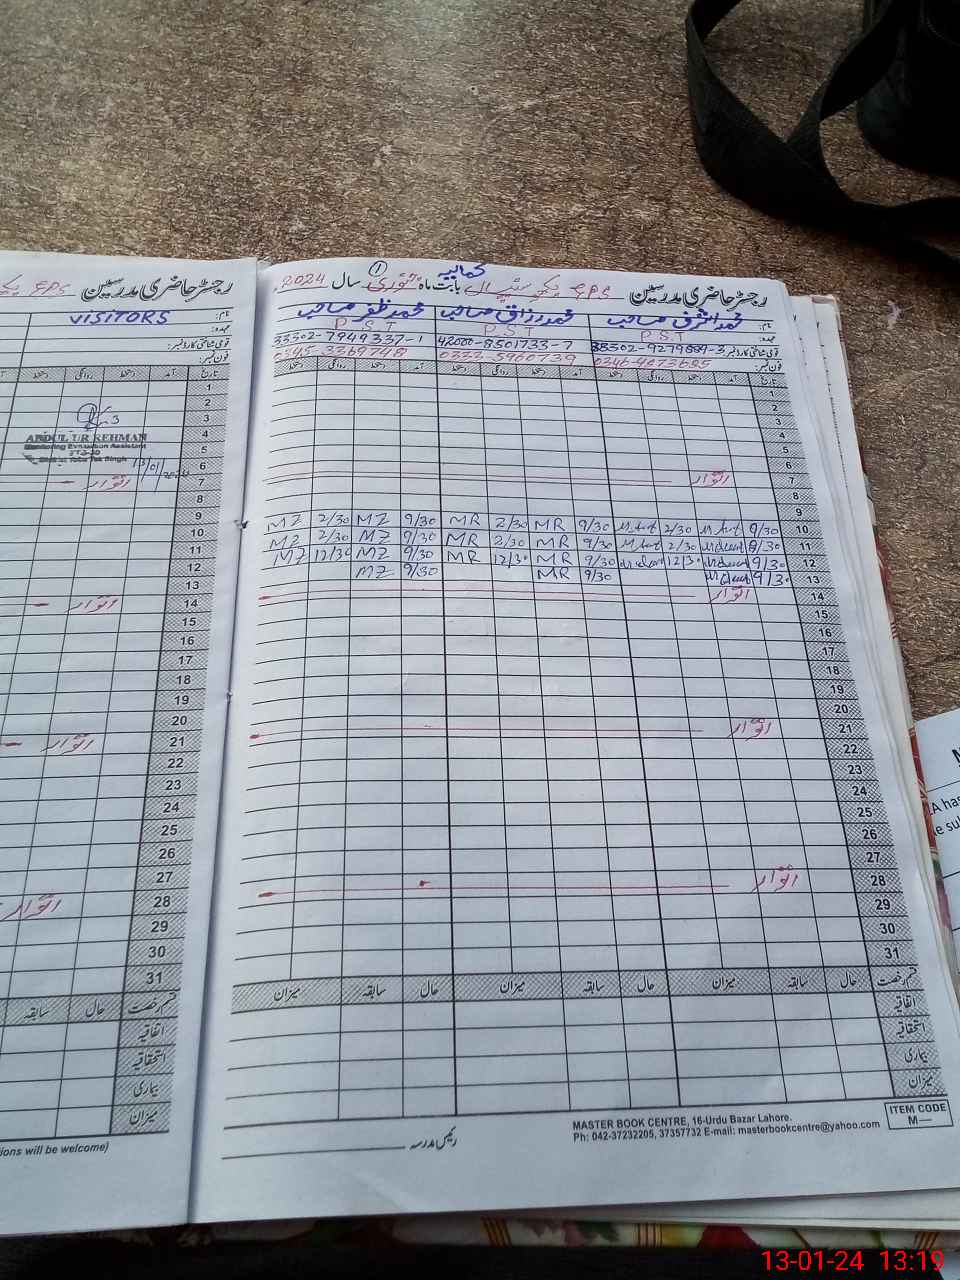 رجسٹر حاضری مدرسین GPS بابت ماہ جنوری سال 2024
کمالیہ
1
نام: محمد اشرف صاحب محمد رزاق صاحب محمد ظفر صاحب
عہدہ: P.S.T P.S.T P.S.T
قومی شناختی کارڈ نمبر: 42000-8501733-7 33302-7949337-1
فون نمبر: 0333-5960739 0345-3369748
تاریخ آمد دستخط روانگی دستخط آمد دستخط روانگی دستخط آمد دستخط روانگی دستخط
1
2
3
4
5
6
7 اتوار
8
9
MZ 2/30 MZ 9/30 MR 2/30 MR 9/30 2/30 9/30 10
MZ 2/30 MZ 9/30 MR 2/30 MR 9/30 2/30 8/30 11
MZ 12/30 MZ 9/30 MR 12/30 MR 9/30 12/30 9/30 12
MZ 9/30 MR 9/30 9/30 13
14 اتوار
15
16
17
18
19
20
21 اتوار
22
23
24
25
26
27
28 اتوار
29
30
31
قسم رخصت حال سابقہ میزان حال سابقہ میزان حال سابقہ میزان
اتفاقیہ
استحقاقیہ
بیماری
میزان
رئیس مدرسہ
MASTER BOOK CENTRE, 16-Urdu Bazar Lahore.
Ph: 042-37232205, 37357732 E-mail: masterbookcentre@yahoo.com
ITEM CODE
M—
رجسٹر حاضری مدرسین GPS
نام: VISITORS
عہدہ:
قومی شناختی کارڈ نمبر:
فون نمبر:
تاریخ آمد دستخط روانگی دستخط
1
2
3
4
5
6
7 اتوار
8
9
10
11
12
13
14 اتوار
15
16
17
18
19
20
21 اتوار
22
23
24
25
26
27
28 اتوار
29
30
31
ABDUL UR REHMAN
Monitoring Evaluation Assistant
District Toba Tek Singh
قسم رخصت حال سابقہ
اتفاقیہ
استحقاقیہ
بیماری
میزان
ions will be welcome)
13-01-24 13:19